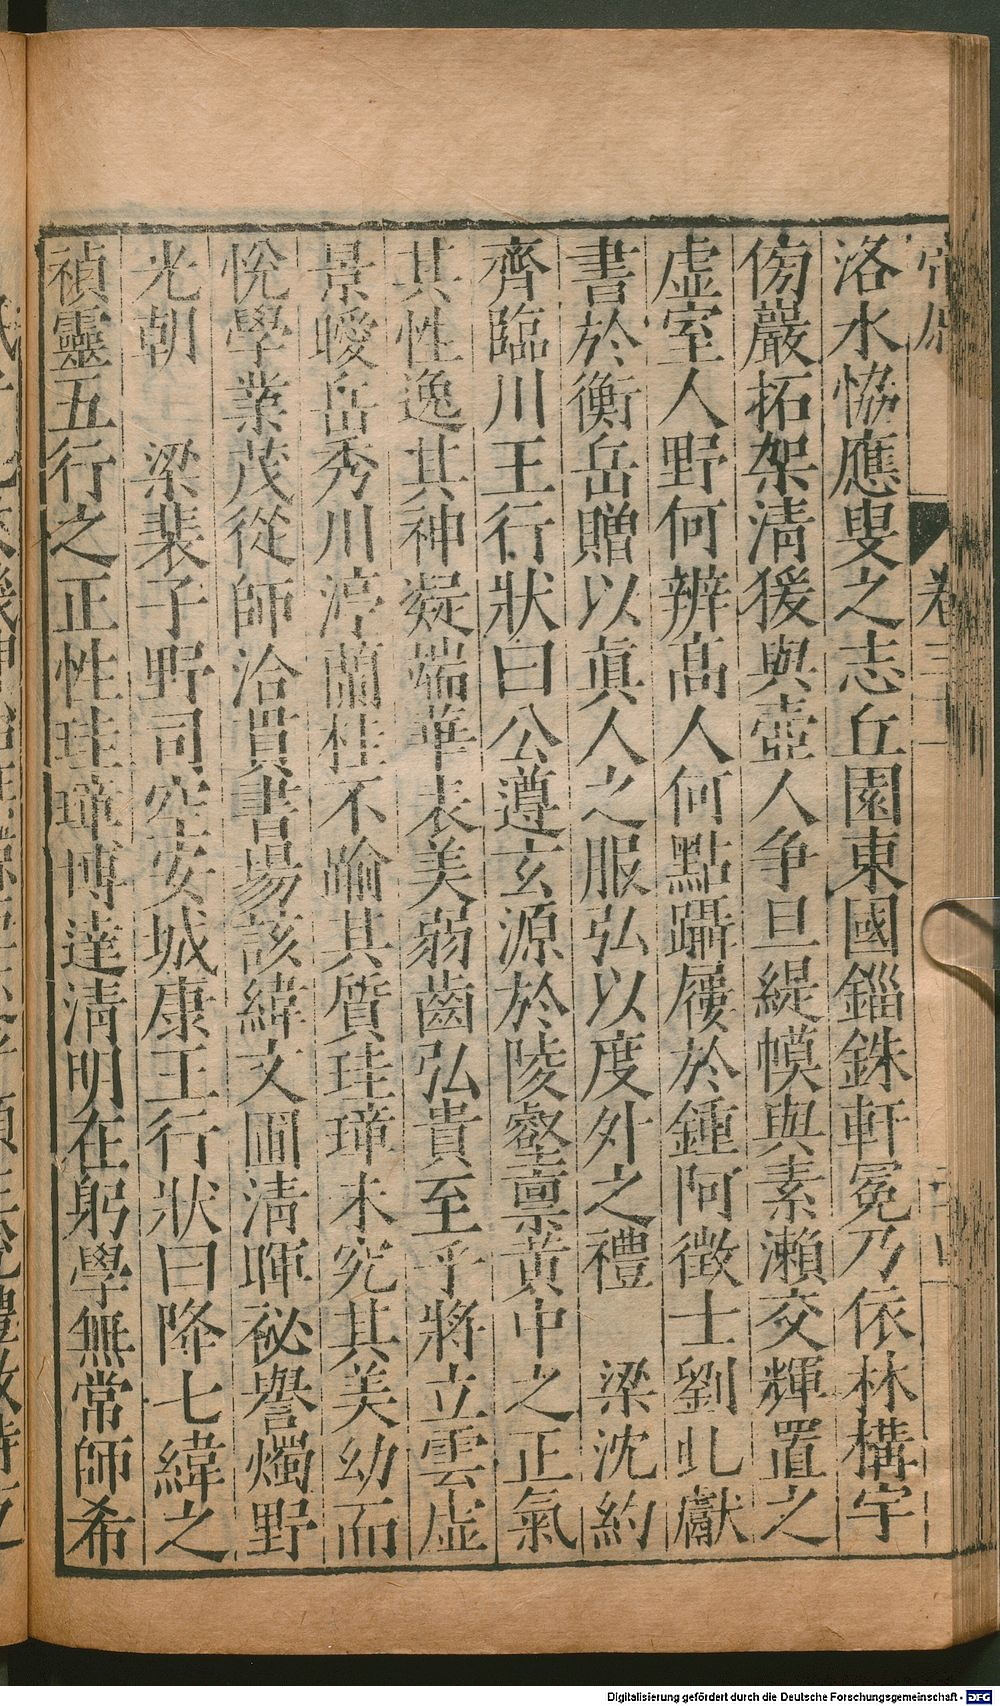 洛水恊應叟之志丘園東國錙銖軒冕乃依林構宇
傍巖拓架清猨與壺人争旦緹幙與素瀨交輝置之
虚室人野何辨髙人何點躡屨於鍾阿徵士劉虬獻
書於衡岳贈以眞人之服弘以度外之禮　梁沈約
齊臨川王行狀曰公遵玄源於陵壑禀黄中之正氣
其性逸其神凝端華表美弱齒弘貴至乎將立雲虚
景曖岳秀川渟蘭桂不喻其質珪璋未究其美幼而
悅學業茂從師洽買書塲該緯文圃清暉祕譽燭野
光朝　梁裴子野司空安城康王行狀曰降七緯之
禎靈五行之正性珪璋博達清明在躬學無常師希
卷三
Digitalisierung gefördert durch die Deutsche Forschungsgemeinschaft - DFG